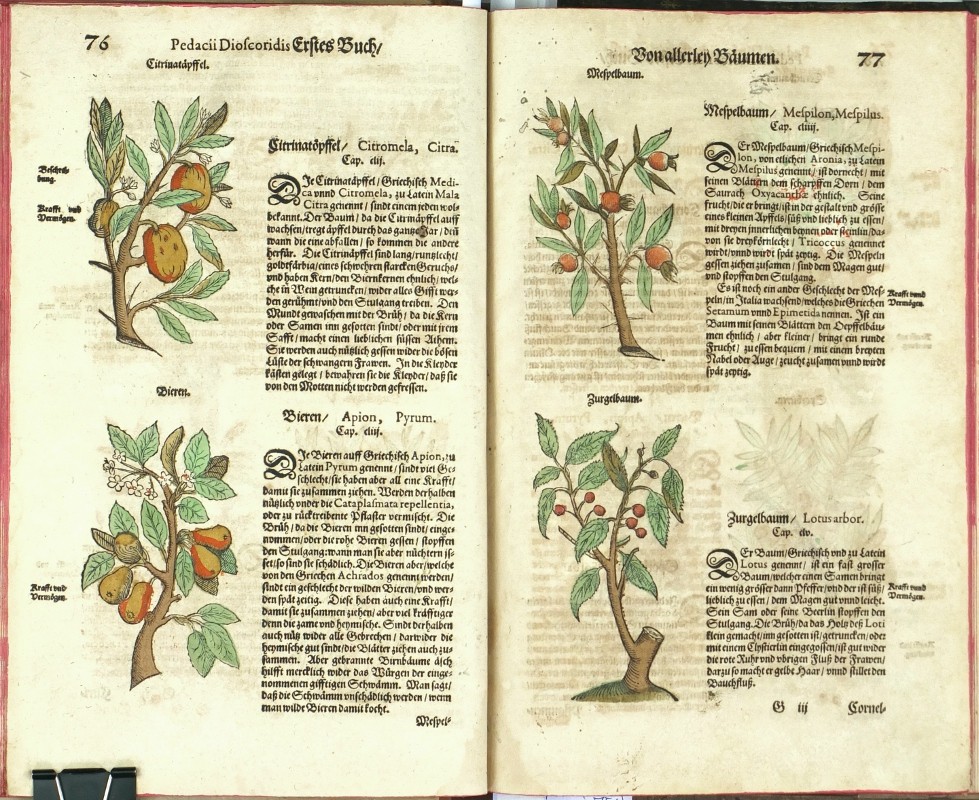 76 Pedacii Dioscoridis Erstes Buch/
Citrinatäpffel.
Beschrei-
bung.
Krafft vnd
Vermögen.
Citrinatöpffel/ Citromela, Citra.
Cap. cliij.
DIe Citrinatäpffel/ Griechisch Medi-
ca vnnd Citromela, zu Latein Mala
Citra genennt / sindt einem jeden wol
bekannt. Der Baum / da die Citrinäpffel auff
wachsen/tregt äpffel durch das gantze Jar / denn
wann die eine abfallen / so kommen die andere
herfür. Die Citrinäpffel sind lang/runtzlecht/
goldtfärbig/eines schwehren starcken Geruchs/
vnd haben Kern/den Biernkernen ehnlich/wel-
che in Wein getruncken/wider alles Gifft wer-
den gerühmt/vnd den Stulgang treiben. Den
Mundt gewaschen mit der Brüh / da die Kern
oder Samen inn gesotten sindt/ oder mit jrem
Safft/ macht einen lieblichen süssen Athem.
Sie werden auch nützlich gessen wider die bösen
Lüste der schwangern Frawen. In die Kleyder
kästen gelegt / bewahren sie die Kleyder/ daß sie
von den Motten nicht werden gefressen.
Bieren.
Krafft vnd
Vermögen.
Bieren/ Apion, Pyrum.
Cap. cliiij.
DIe Bieren auff Griechisch Apion, zu
Latein Pyrum genennt / sindt viel Ge-
schlecht/sie haben aber all eine Krafft/
damit sie zusammen ziehen. Werden derhalben
nützlich vnder die Cataplasmata repellentia,
oder zu rücktreibende Pflaster vermischt. Die
Brüh / da die Bieren inn gesotten sindt/ einge-
nommen/oder die rohe Bieren gessen/ stopffen
den Stulgang: wann man sie aber nüchtern is-
set/so sind sie schädlich. Die Bieren aber/welche
von den Griechen Achrados genennt werden/
sindt ein geschlecht der wilden Bieren/vnd wer-
den spät zeitig. Diese haben auch eine Krafft/
damit sie zusammen ziehen/ aber viel kräfftiger
denn die zame vnd heymische. Sindt derhalben
auch nütz wider alle Gebrechen / darwider die
heymische gut sindt/die Blätter ziehen auch zu-
sammen. Aber gebrannte Birnbäume äsch
hilfft mercklich wider das Würgen der einge-
nommenen gifftigen Schwämm. Man sagt/
daß die Schwämm vnschädlich werden / wenn
man wilde Bieren damit kocht.
Mespel-
Von allerley Bäumen. 77
Mespelbaum.
Mespelbaum/ Mespilon, Mespilus.
Cap. cliiij.
DEr Mespelbaum/Griechisch Mespi-
lon, von etlichen Aronia, zu Latein
Mespilus genennt / ist dornecht / mit
seinen Blättern dem scharpffen Dorn / dem
Saurach Oxyacanthæ ehnlich. Seine
frucht/die er bringt/ist in der gestalt vnd grösse
eines kleinen Apffels/süß vnd lieblich zu essen/
mit dreyen jnnerlichen beynen oder steinlin/da-
von sie dreyförnlecht / Tricoccus genennet
wirdt/vnnd wirdt spät zeytig. Die Mespeln
gessen ziehen zusamen / sind dem Magen gut/
vnd stopffen den Stulgang.
Es ist noch ein ander Geschlecht der Mes-
peln/in Italia wachsend/welches die Griechen
Setanum vnnd Epimetida nennen. Ist ein
Baum mit seinen Blättern den Oepffelbäu-
men ehnlich / aber kleiner / bringt ein runde
Frucht/ zu essen bequem / mit einem breyten
Nabel oder Auge/ zeucht zusamen vnnd wirdt
spät zeytig.
Krafft vnnd
Vermögen.
Zurgelbaum.
Zurgelbaum/ Lotus arbor.
Cap. clv.
DEr Baum/Griechisch vnd zu Latein
Lotus genennt / ist ein fast grosser
Baum/welcher einen Samen bringt
ein wenig grösser dann Pfeffer/vnd der ist süß/
lieblich zu essen / dem Magen gut vnnd leicht.
Sein Sam oder seine Beerlin stopffen den
Stulgang. Die Brüh/da das Holtz deß Loti
klein gemacht/inn gesotten ist/getruncken/oder
mit einem Clystierlin eingegossen/ist gut wider
die rote Ruhr vnd vbrigen Fluß der Frawen/
darzu so macht er gelbe Haar / vnnd stillet den
Bauchfluß.
Krafft vnnd
Vermögen.
G iij Cornel-